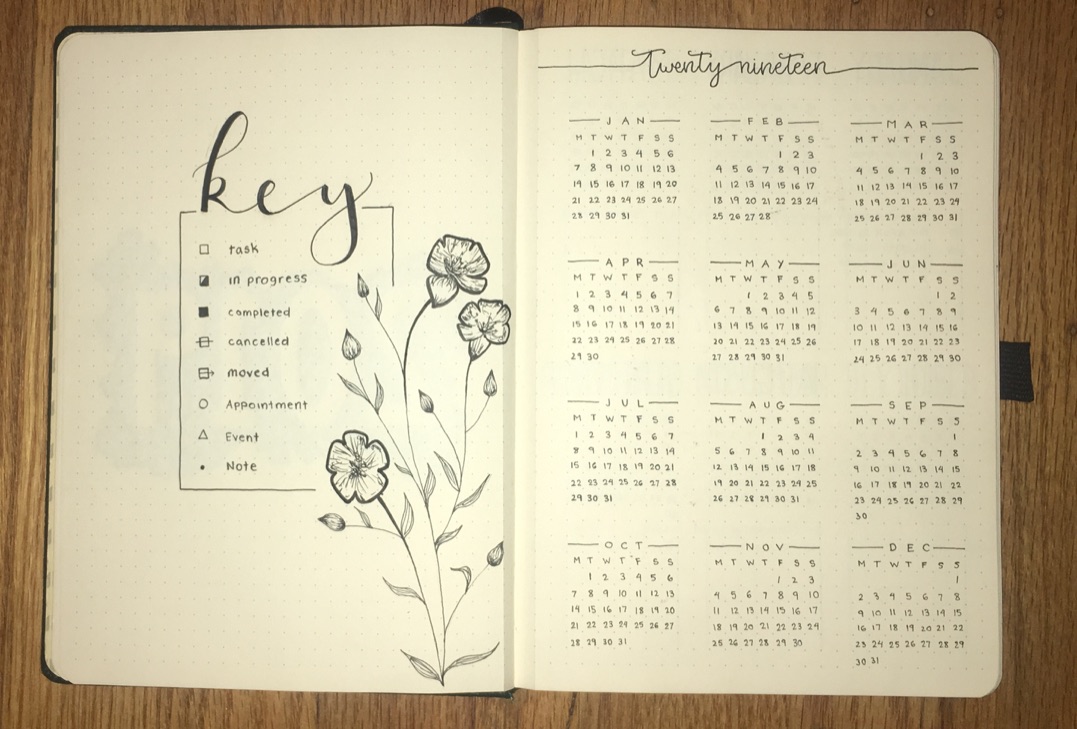 key
task
in progress
completed
cancelled
moved
Appointment
Event
Note
Twenty nineteen
JAN
M T W T F S S
1 2 3 4 5 6
7 8 9 10 11 12 13
14 15 16 17 18 19 20
21 22 23 24 25 26 27
28 29 30 31
FEB
M T W T F S S
1 2 3
4 5 6 7 8 9 10
11 12 13 14 15 16 17
18 19 20 21 22 23 24
25 26 27 28
MAR
M T W T F S S
1 2 3
4 5 6 7 8 9 10
11 12 13 14 15 16 17
18 19 20 21 22 23 24
25 26 27 28 29 30 31
APR
M T W T F S S
1 2 3 4 5 6 7
8 9 10 11 12 13 14
15 16 17 18 19 20 21
22 23 24 25 26 27 28
29 30
MAY
M T W T F S S
1 2 3 4 5
6 7 8 9 10 11 12
13 14 15 16 17 18 19
20 21 22 23 24 25 26
27 28 29 30 31
JUN
M T W T F S S
1 2
3 4 5 6 7 8 9
10 11 12 13 14 15 16
17 18 19 20 21 22 23
24 25 26 27 28 29 30
JUL
M T W T F S S
1 2 3 4 5 6 7
8 9 10 11 12 13 14
15 16 17 18 19 20 21
22 23 24 25 26 27 28
29 30 31
AUG
M T W T F S S
1 2 3 4
5 6 7 8 9 10 11
12 13 14 15 16 17 18
19 20 21 22 23 24 25
26 27 28 29 30 31
SEP
M T W T F S S
1
2 3 4 5 6 7 8
9 10 11 12 13 14 15
16 17 18 19 20 21 22
23 24 25 26 27 28 29
30
OCT
M T W T F S S
1 2 3 4 5 6
7 8 9 10 11 12 13
14 15 16 17 18 19 20
21 22 23 24 25 26 27
28 29 30 31
NOV
M T W T F S S
1 2 3
4 5 6 7 8 9 10
11 12 13 14 15 16 17
18 19 20 21 22 23 24
25 26 27 28 29 30
DEC
M T W T F S S
1
2 3 4 5 6 7 8
9 10 11 12 13 14 15
16 17 18 19 20 21 22
23 24 25 26 27 28 29
30 31